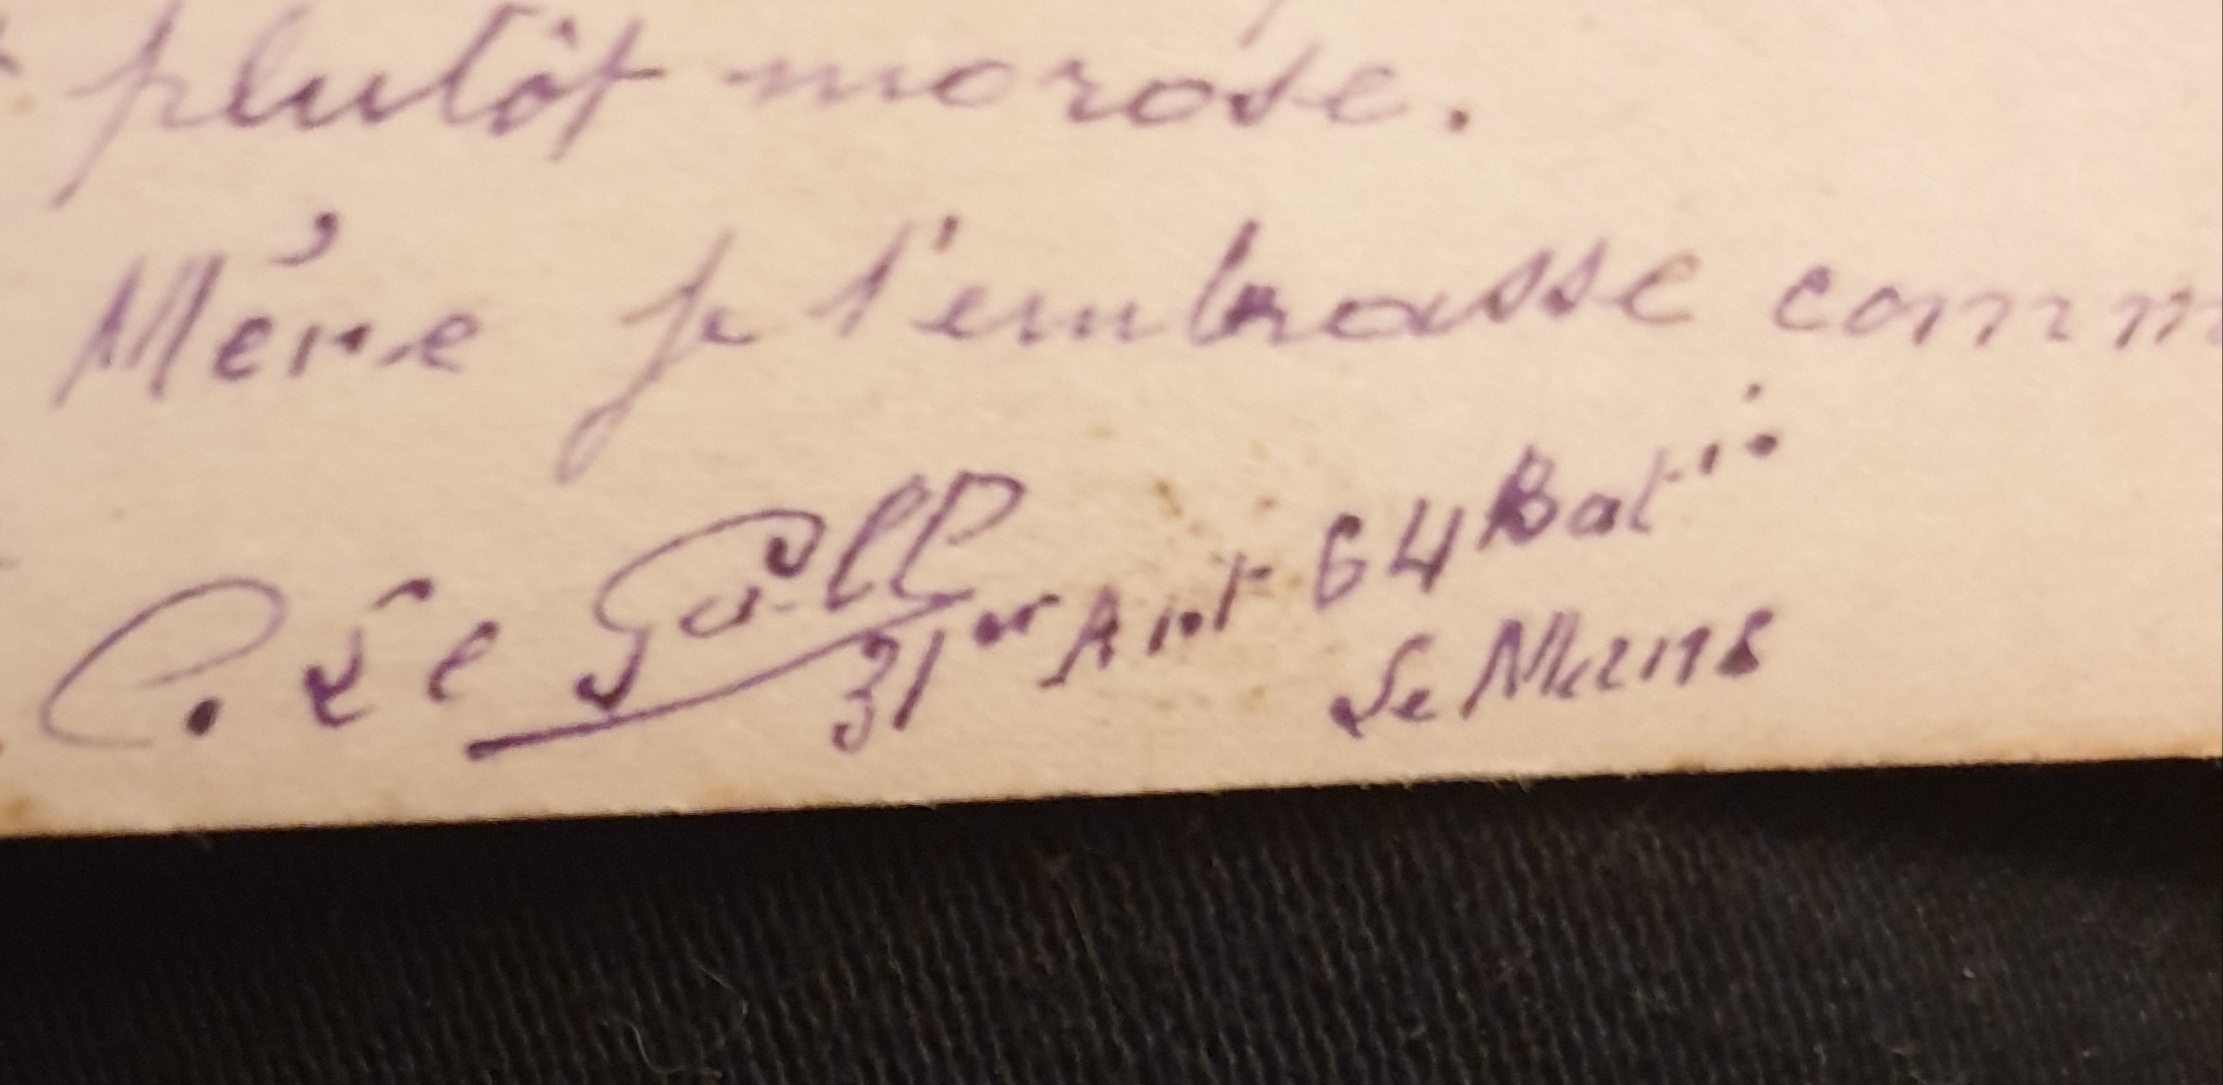 plutôt morose.
Mère je t'embrasse comm
C. Le Gall
31er Art 64 Batie
Le Mans